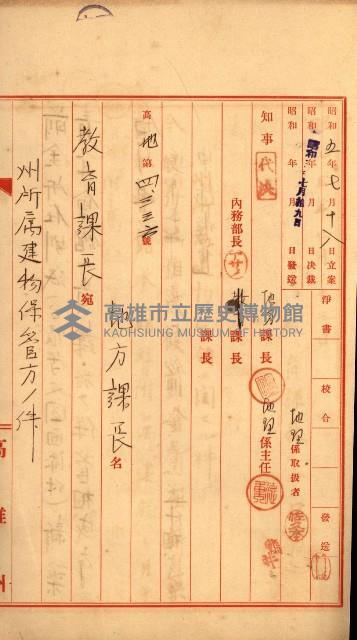 昭和五年七月十八日立案
昭和 年 月 日決裁
昭和 年七月拾九日發送
淨書
校合
發送
地理係取扱者
知事
代決
地理係主任
地方課長
內務部長
教育課長
課長
高地第四三三六號
教育課長宛
地方課長名
州所屬建物保管方ノ件
高雄州
高雄市立歷史博物館
KAOHSIUNG MUSEUM OF HISTORY